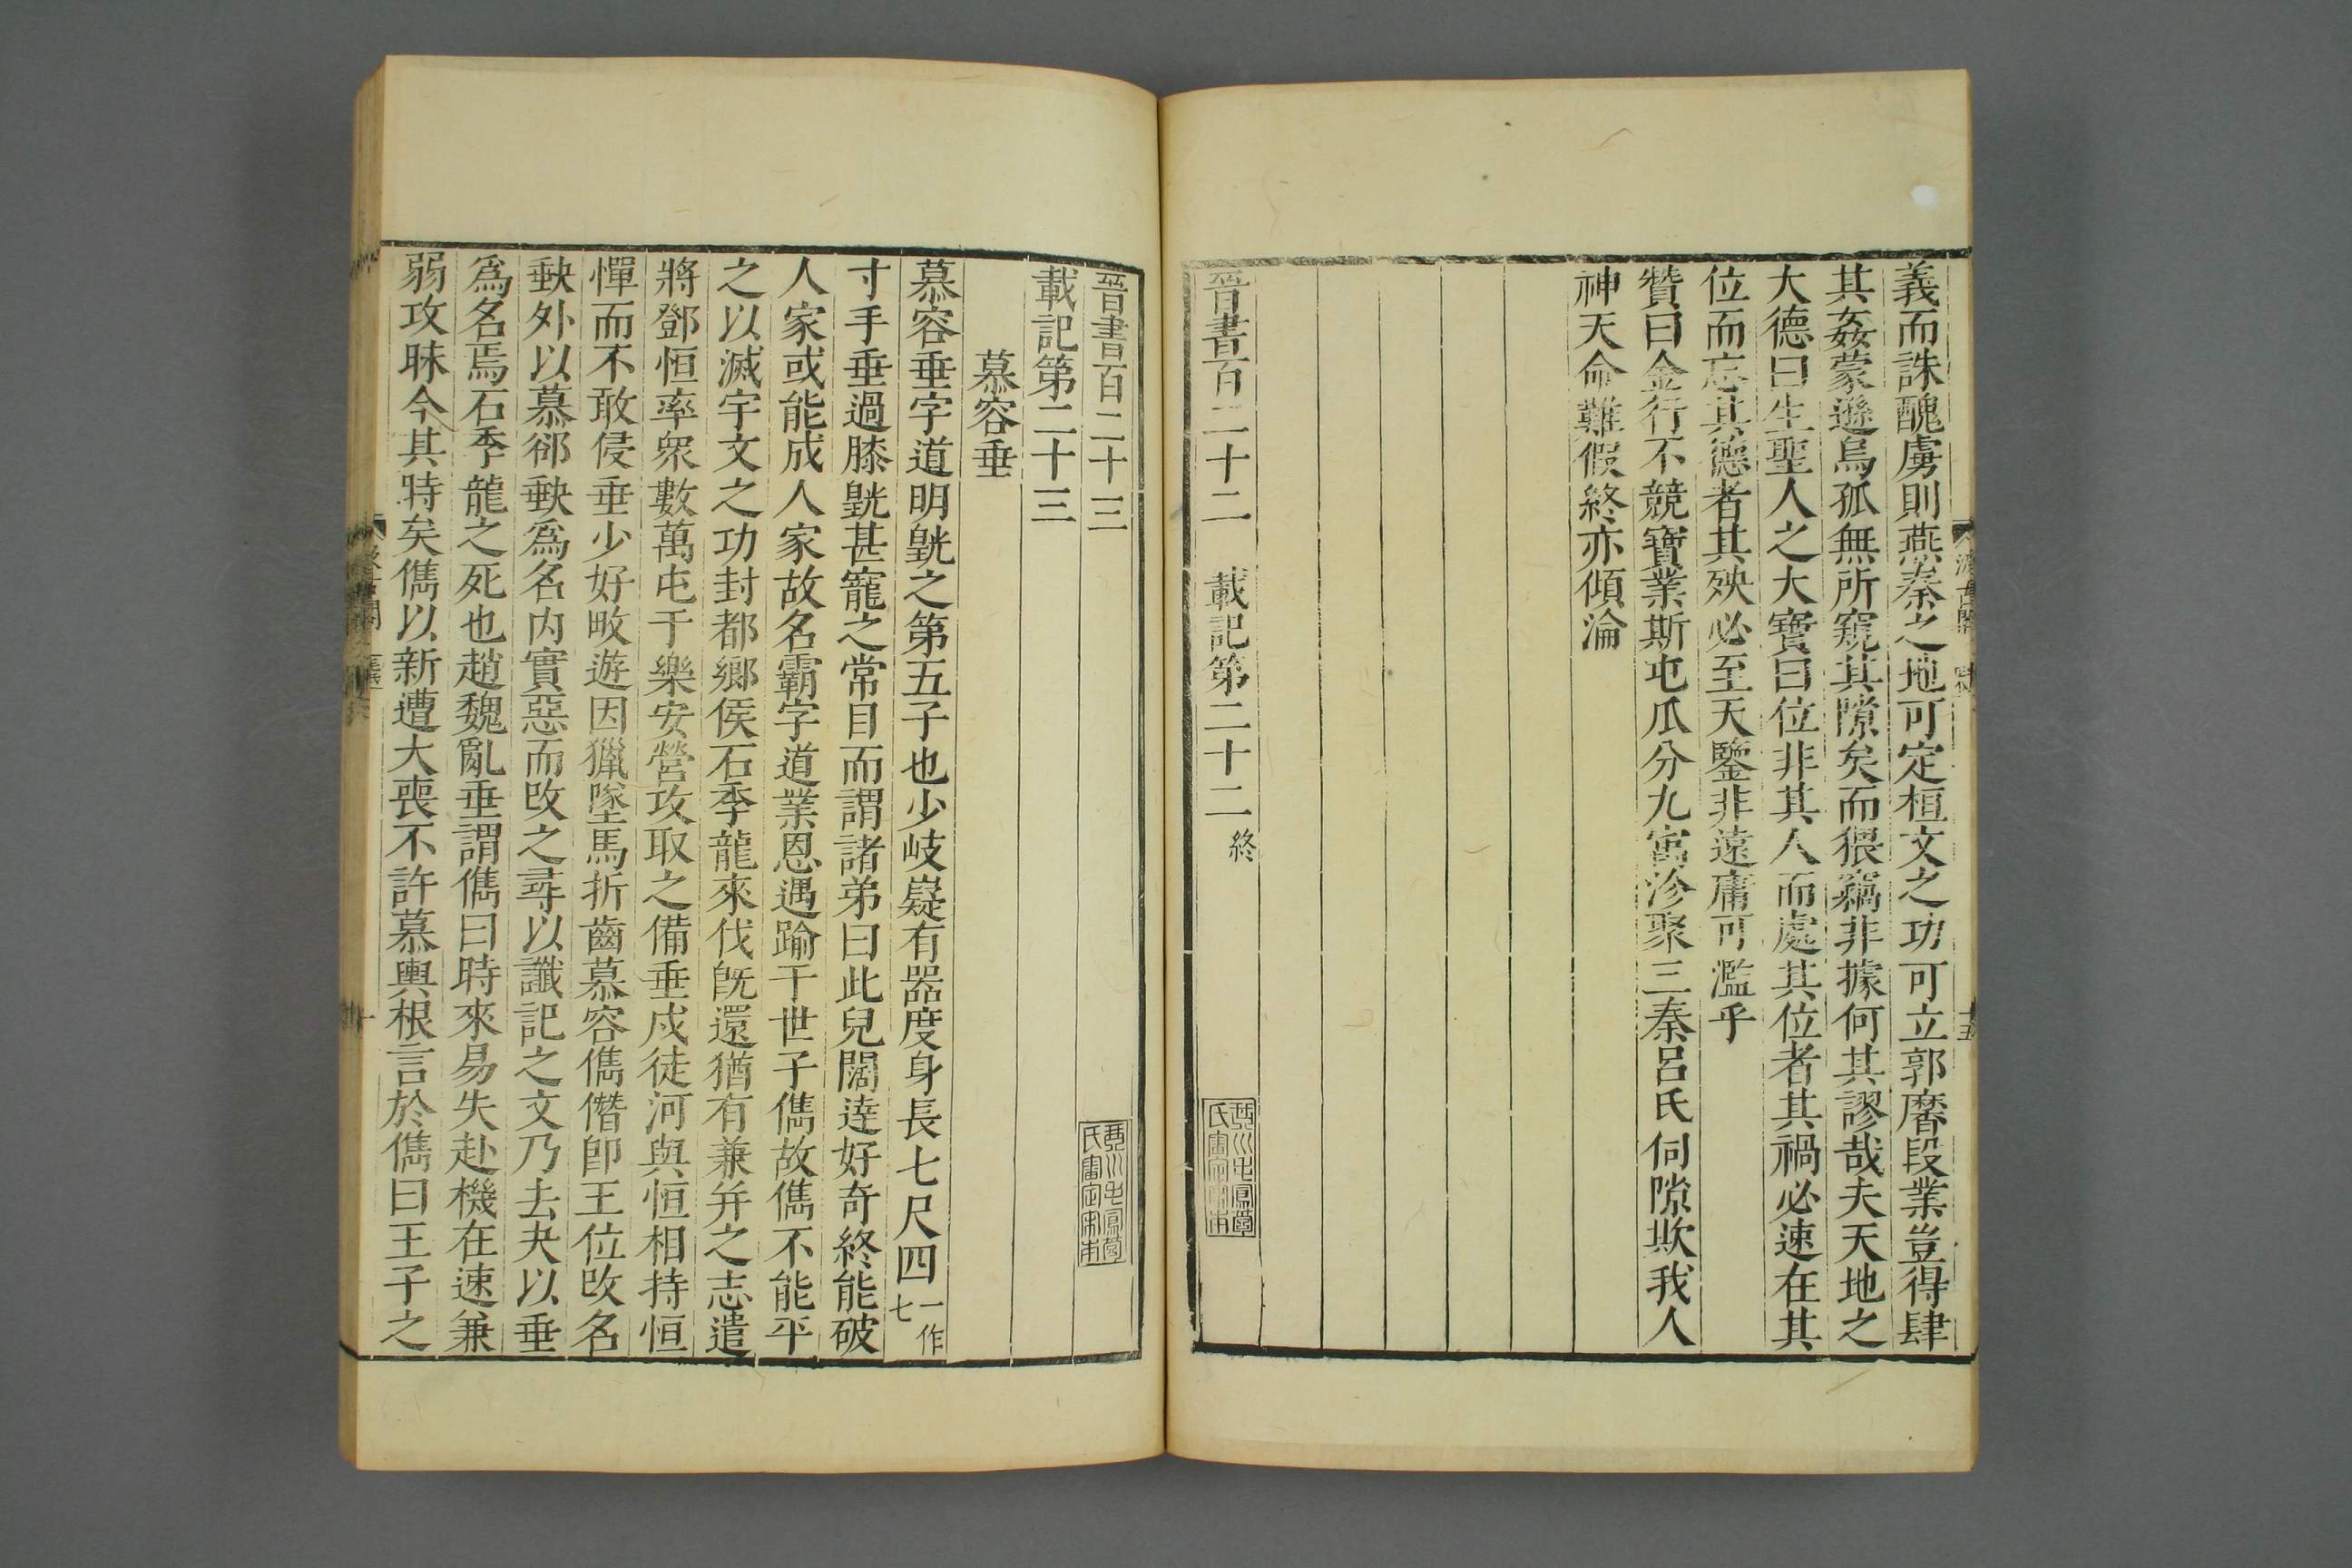 義而誅醜虜則燕秦之地可定桓文之功可立郭黁段業豈得肆
其姦蒙遜烏孤無所窺其隙矣而猥竊非據何其謬哉夫天地之
大德曰生聖人之大寶曰位非其人而處其位者其禍必速在其
位而忘其德者其殃必至天鑒非遠庸可濫乎
贊曰金行不競寶業斯屯瓜分九寓沴聚三秦呂氏伺隙欺我人
神天命難假終亦傾淪
晉書百二十二 載記第二十二終
晉書百二十三
載記第二十三
慕容垂
慕容垂字道明皝之第五子也少岐嶷有器度身長七尺四一作七
寸手垂過膝皝甚寵之常目而謂諸弟曰此兒闊達好奇終能破
人家或能成人家故名霸字道業恩遇踰于世子儁故儁不能平
之以滅宇文之功封都鄉侯石季龍來伐旣還猶有兼并之志遣
將鄧恒率眾數萬屯于樂安營攻取之備垂戍徒河與恒相持恒
憚而不敢侵垂少好畋遊因獵墜馬折齒慕容儁僭卽王位改名
𡙇外以慕郤𡙇爲名内實惡而改之尋以讖記之文乃去夬以垂
爲名焉石季龍之死也趙魏亂垂謂儁曰時來易失赴機在速兼
弱攻昧今其時矣儁以新遭大喪不許慕輿根言於儁曰王子之